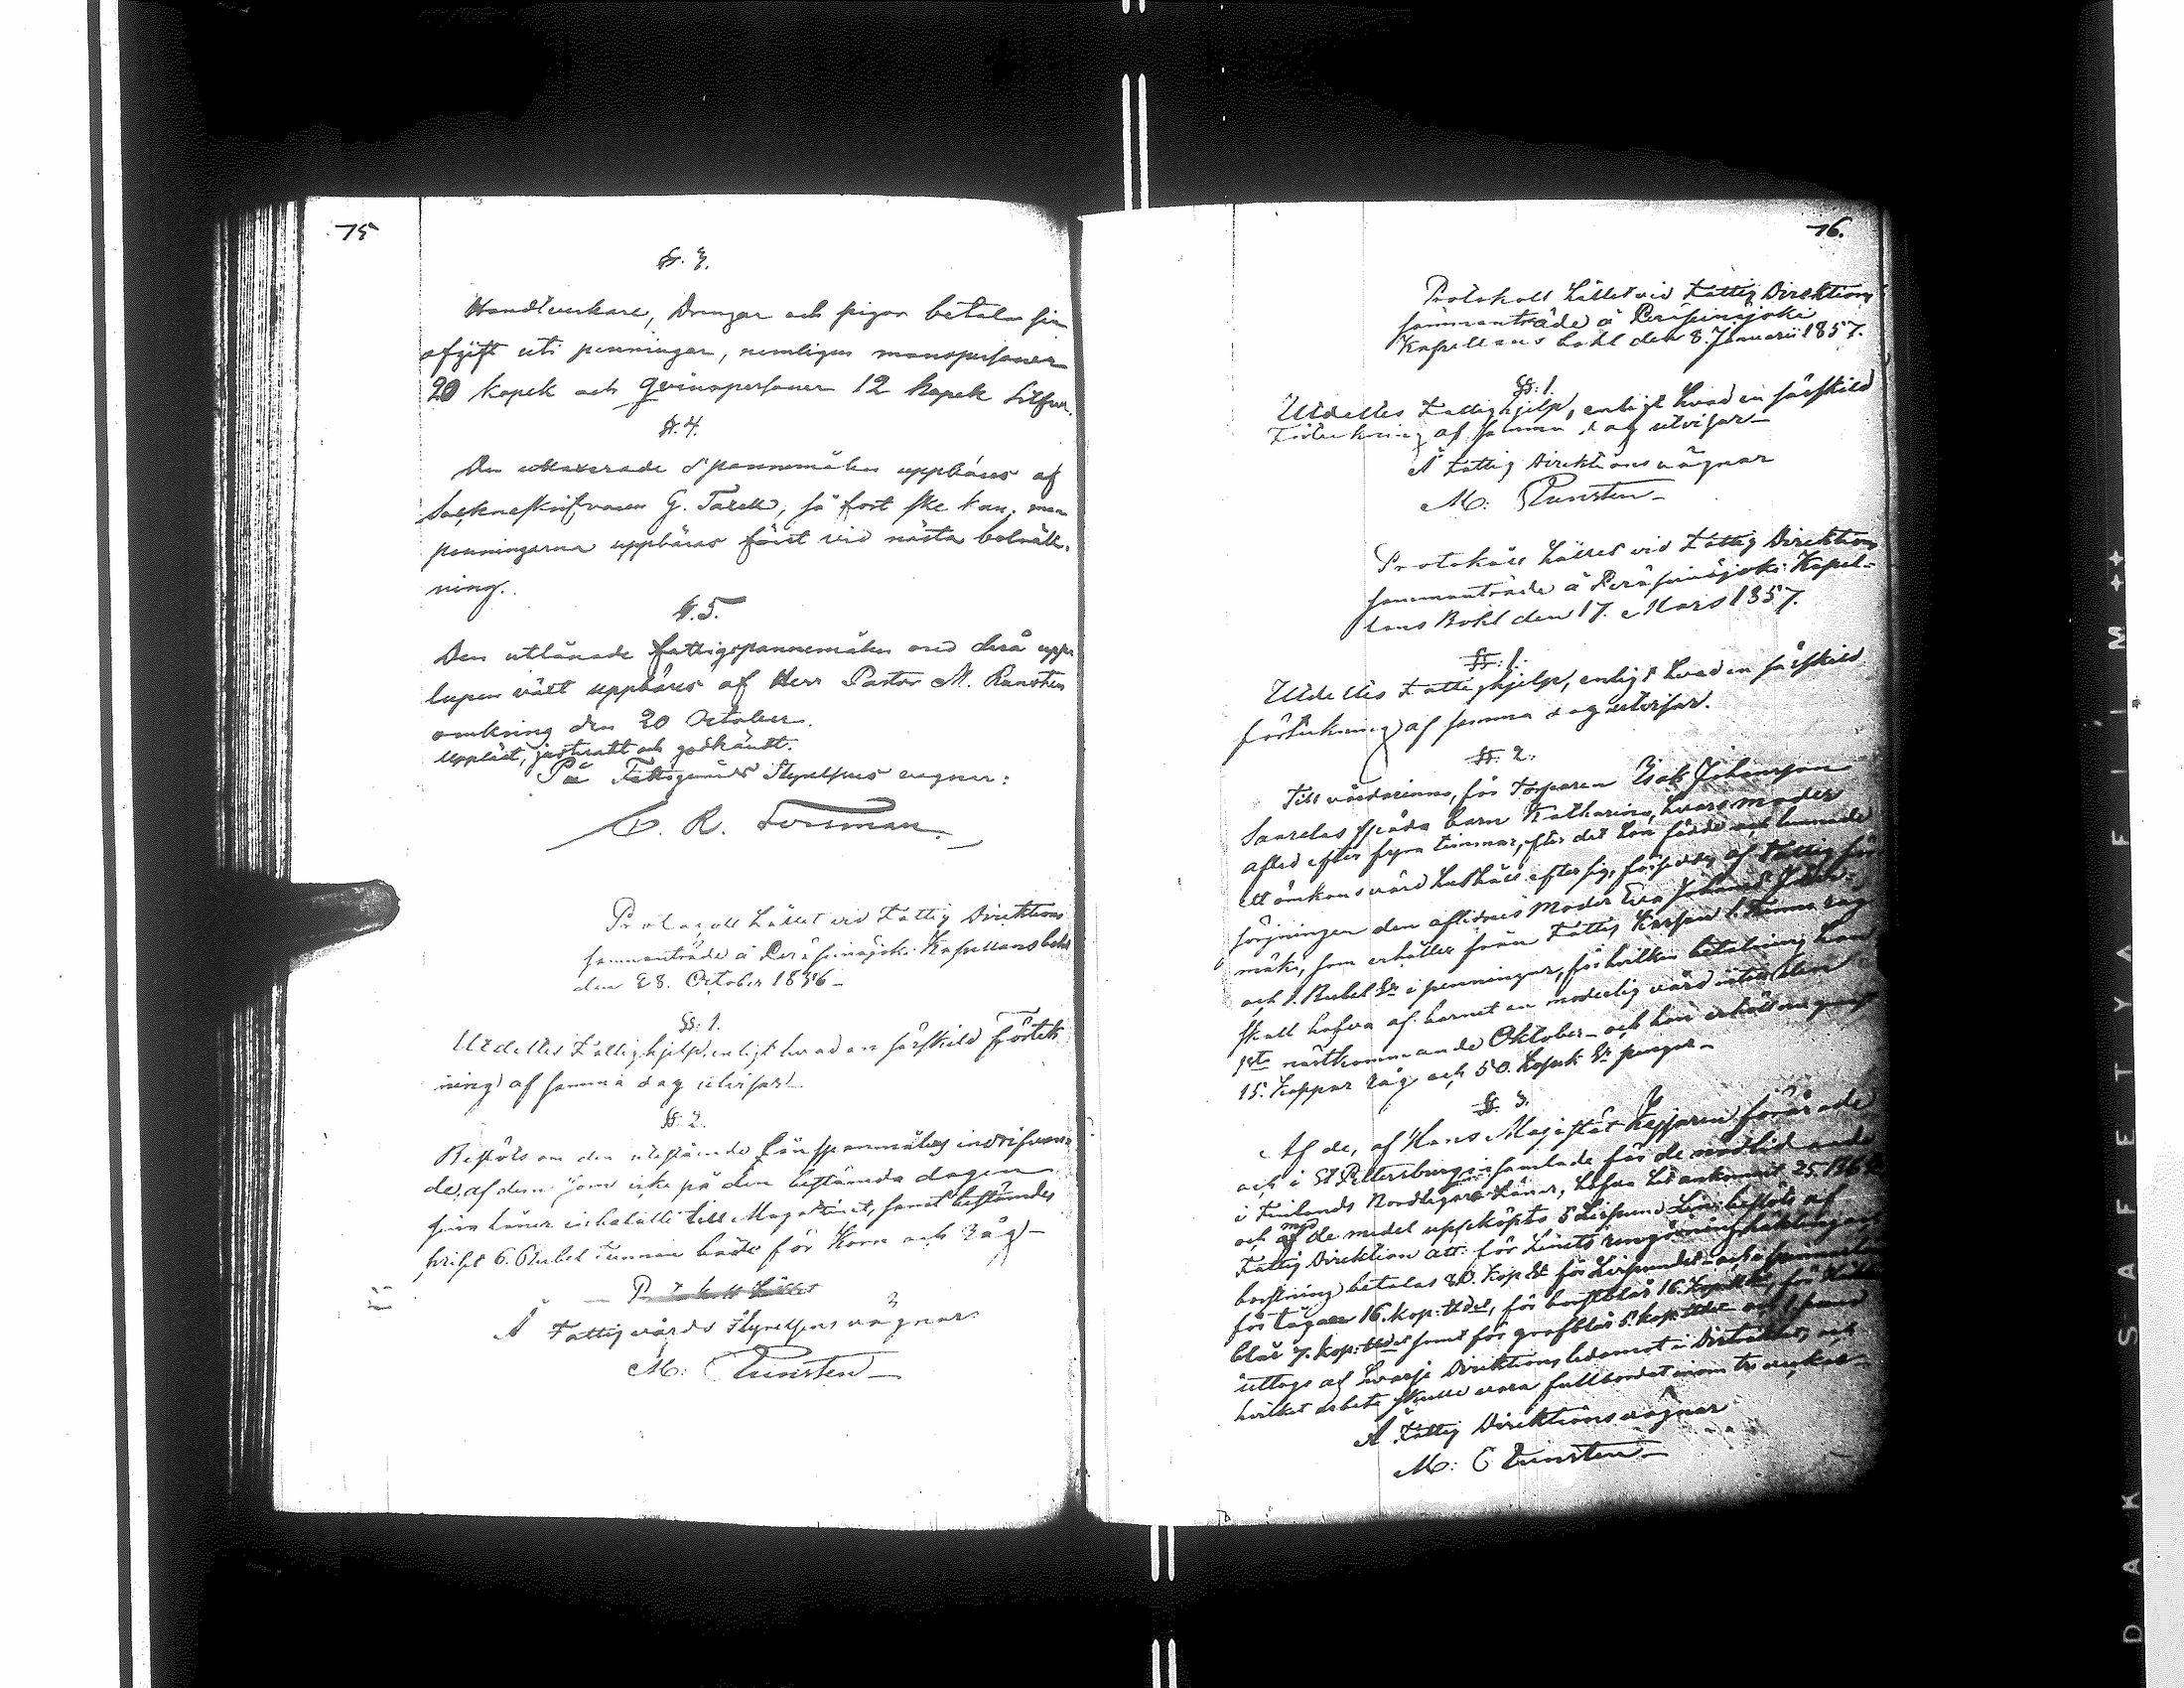 75
§. 3.
Handtverkare, Drengar och pigor betala sin
afgift uti penningar, nemligen manspersoner
20 kopek och qvinspersoner 12 kopek Silfver.
§. 4.
Den uttaxerade Spannemålen uppbäres af
Sockneskrifvaren G. Tazell, så fort ske kan, men
penningarna uppbäras först vid nästa bolräk-
ning.
§. 5.
Den utlånade fattigspannemålen med derå upp-
lupen vext uppbäres af Herr Pastor M. Runsten
omkring den 20 October.
Uppläst, justeradt och godkändt.
På Fattigvårds Styrelsens vegnar:
C. R. Forsman.
Protocoll hållet vid Fattig Direktions
sammanträde å Peräseinäjoki Kapellans bohl
den 28. October 1856 -
§§: 1.
Utdeltes Fattighjelp, enligt hvad en särskild förtek
ning af samma dag utvisar.
§§: 2.
Beslöts om den utestående Lånspannmålens indrifvan-
de, af dem som icke på den bestämda dagen
sina låner inbetalt till Magazinet, samt bestämdes
priset 6. Rubel Tunnan både för Korn och Råg -
Protokoll hållet
Å Fattigvårds Styrelsens vägnar
M: Runsten -
76.
Protokoll hållet vid Fattig Direktions
sammanträde å Peräseinäjoki
Kapellans bohl den 8. Januarii 1857.
§§: 1.
Utdeltes Fattighjelp, enligt hvad en särskild
Förteckning af samma dag utvisar -
Å Fattig Direktions vägnar
M: Runsten -
Protokoll hållet vid Fattig Direktions
sammanträde å Peräseinäjoki Kapel-
lans Bohl den 17. Mars 1857.
§§: 1.
Utdeltes Fattighjelp, enligt hvad en särskild
förteckning af samma dag utvisar.
§§. 2.
Till vårdarinna, för Torparen Isak Johansson
Saarelas späda barn Katharina, hvars moder
afled efter fyra timmar, efter det hon födde och lemnade
ett ömkansvärd hushåll efter sig, af Fattig för-
sörjningen den aflidnes Moder Eva
mäki, som erhåller från Fattig Kassan 1. Tunna råg
och 1. Rubel Sr i penningar, för hvilken betalning hon
skall hafva af barnet en moderlig vård intill den
1sta nästkommande Oktober - och hon erhöll nu genast
15. Kappar råg och 50. Kopek Sr penger -
§§. 3.
Af de, af Hans Majestät Kejsaren förärade
och i St Petersburg insamlade för de nödlidande
i Finlands Nordligare Läner, hafva hit ankommit 25. Rb
och med de medel uppköpts 5 Lispund Lin, beslöts af
Fattig Direktion att för Linets rengöring häkling och
borstning betalas 80. Kop Sr för Lispundet - och
för tågan 16. kop: för borstblår 16. för
blår 7. kop: samt för grofblår 5. kop: och
uttogs af hvarje Direktions ledamot i Distriktet, och
hvilket arbete skulle vara fullbordat inom tre veckor -
Å Fattig Direktions vägnar
M: Runsten -
SAFETY FILM
DAK